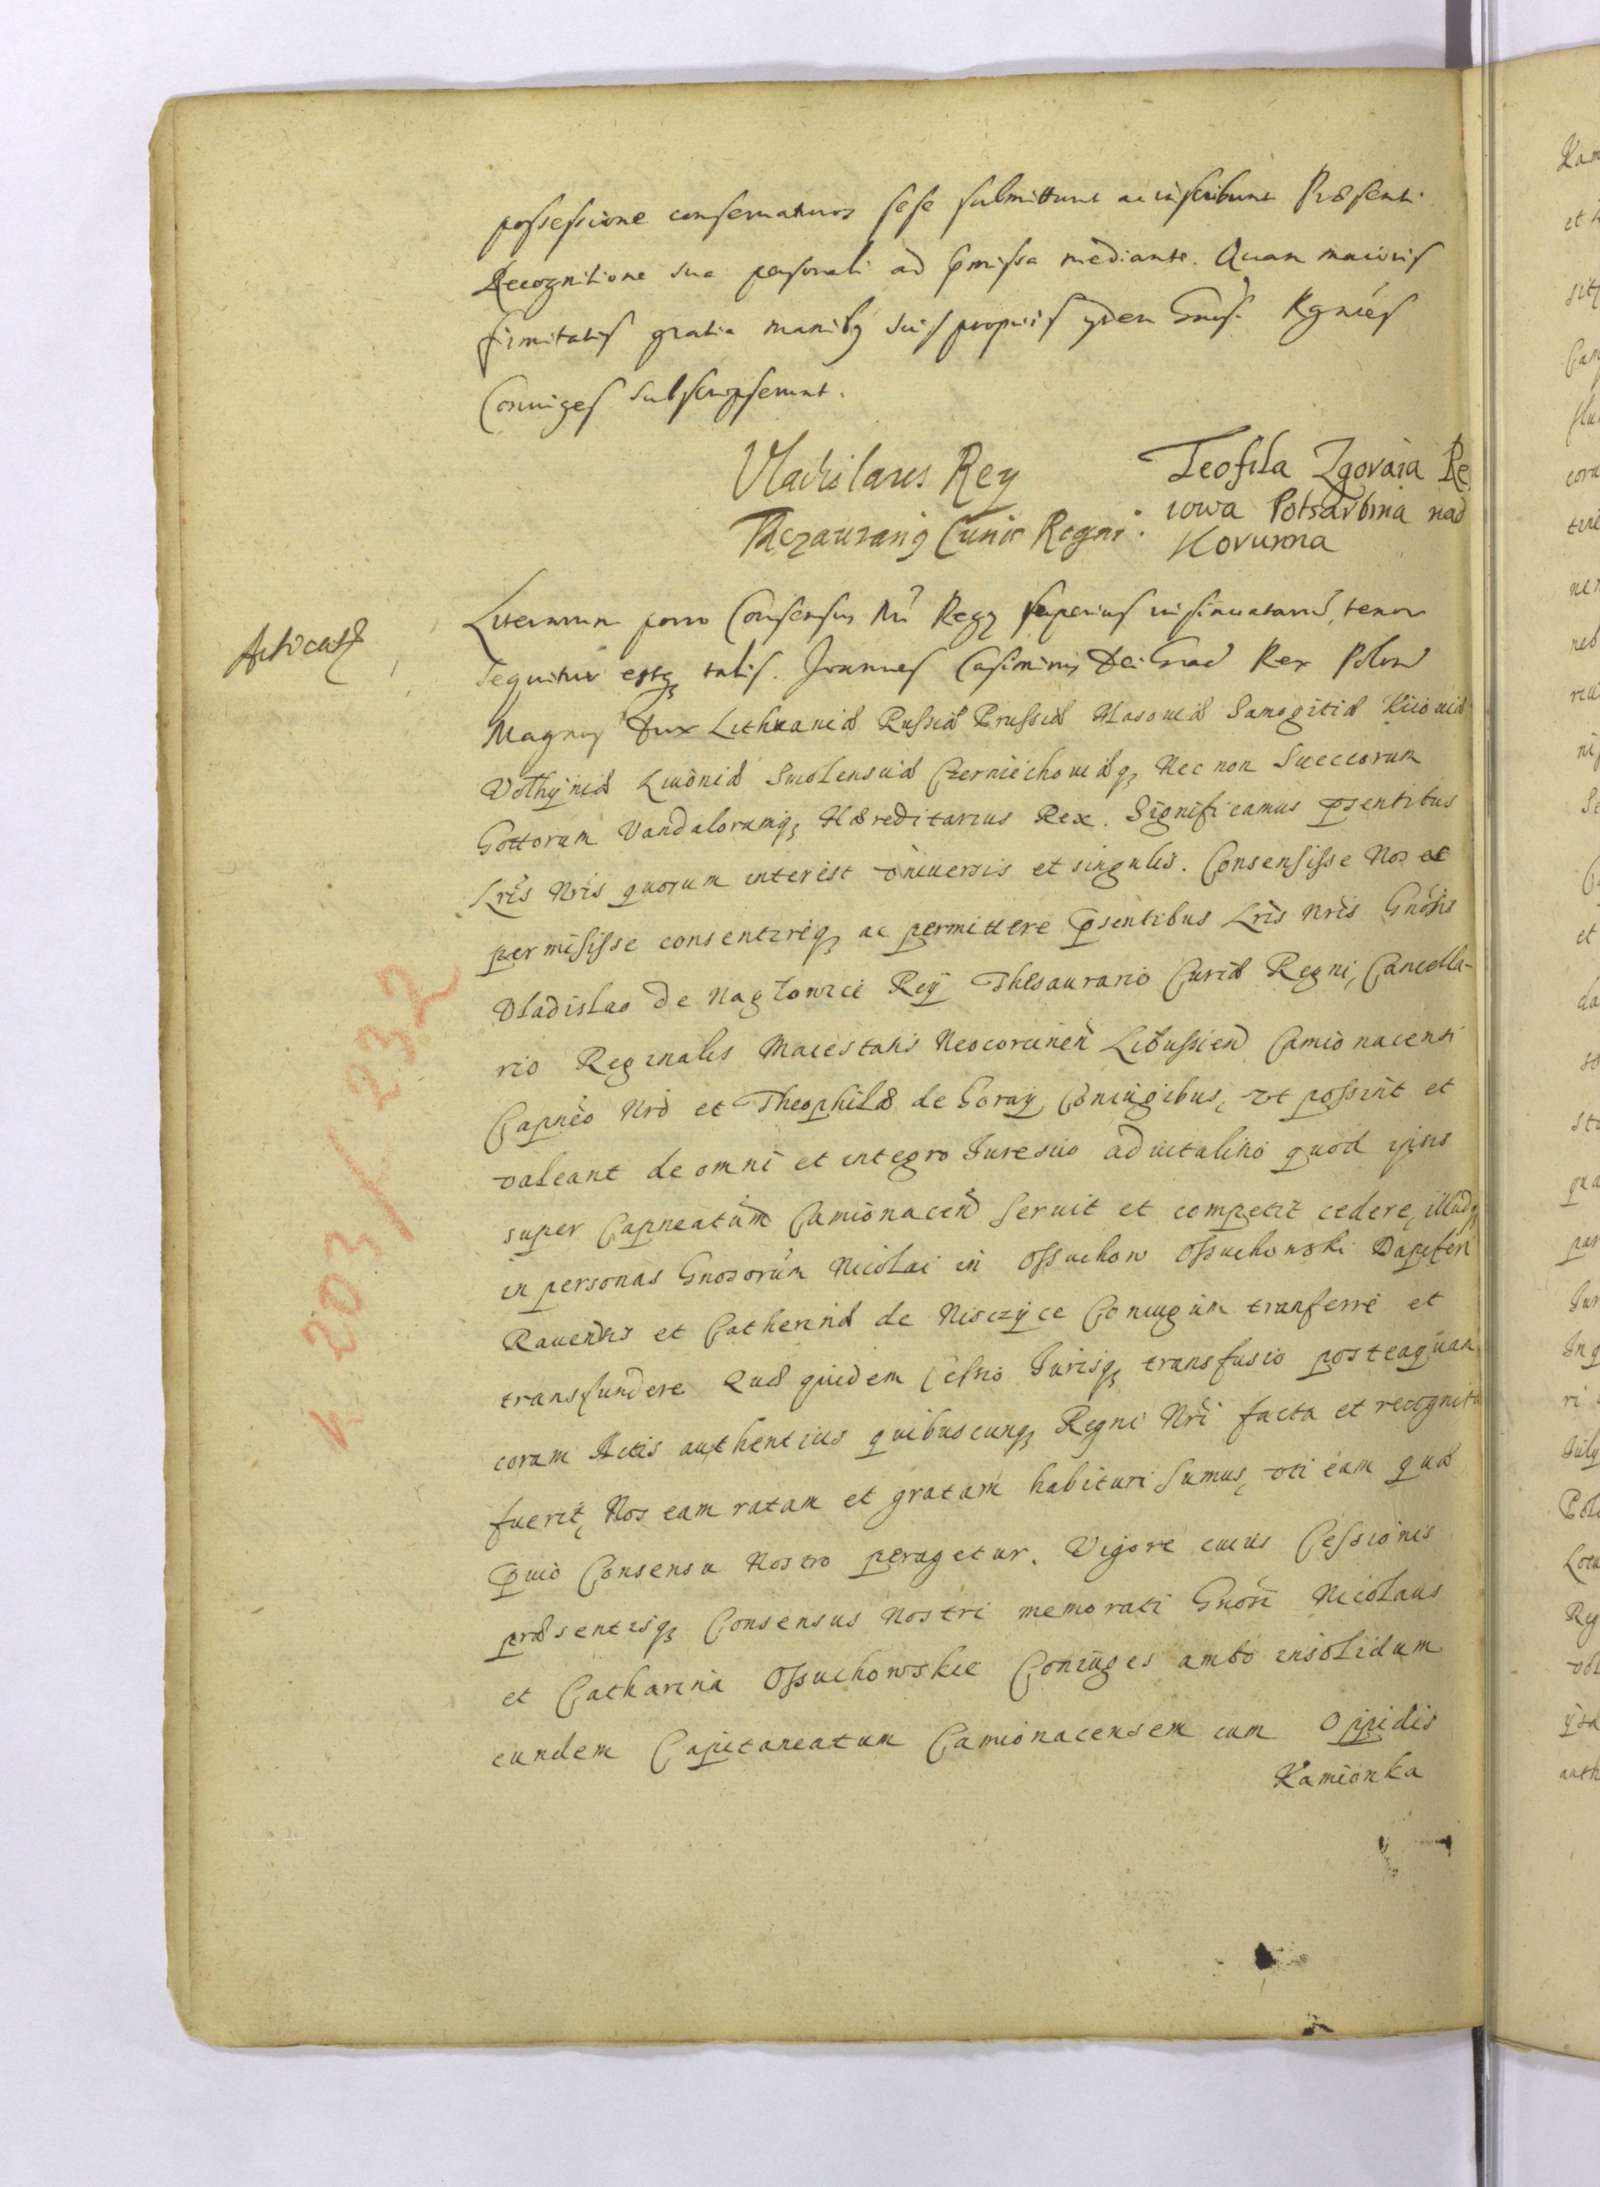 possessione conservaturos sese submittunt ac inscribunt Præsenti
Recognitione sua personali ad p̄missa mediante. Quam maioris
firmitatis gratia manibꝫ suis propriis ydem Gnosi Rgntes
Coniuges subscripserunt.
Vladislaus Rey
Thezaurariꝰ Curiæ Regni.
Teofila Zgoraia Re
iowa Potskarbina nad
Kovurna
Literarum porro Consensus Nri Regꝫ superius insinuatarū, tenor
sequitur estqꝫ talis. Joannes Casimirus Dei Grad Rex Polon
Magnus Dux Lithuaniæ Russiæ Prussiæ Masoviæ Samogitiæ Kiioviæ
Volhyniæ Livoniæ Smolensciæ Czerniechoviæqꝫ Nec non Sueccorum
Gottorum Vandalorumqꝫ Hæreditarius Rex. Significamus p̄sentibus
Lris Nris quorum interest universis et singulis. Consensisse Nos et
permisisse consentireqꝫ ac permittere p̄sentibus Lris Nris Gnosis
Vladislao de Nagłowice Reÿ Thesaurario Curiæ Regni, Cancella-
rio Reginalis Maiestatis Neocorcinen Libussien Camionacensi
Capneo Nro et Theophilæ de Goray Coniugibus, ut possint et
valeant de omni et integro Iure suo advitalitio quod ipsis
super Capneatum Camionacen servit et competit cedere, illudqꝫ
in personas Gnosorum Nicolai in Ossuchow Ossuchowski Dapiferi
Ravensis et Catherinæ de Nisczÿce Coniugum tranferre et
transfundere Quæ quidem Cessio Iurisqꝫ transfusio posteaquam
coram Actis authenticis quibuscunqꝫ Regni Nri facta et recognita
fuerit, Nos eam ratam et gratam habituri sumus, uti eam quæ
p̄vio Consensu Nostro peragetur. Vigore cuius Cessionis
præsentisqꝫ Consensus Nostri memorati Gnosi Nicolaus
et Catharina Ossuchowskie Coniuges ambo insolidum
eundem Capitaneatum Camionacensem cum Oppidis
Kamionka
k. 203/232